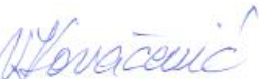 VKovačević